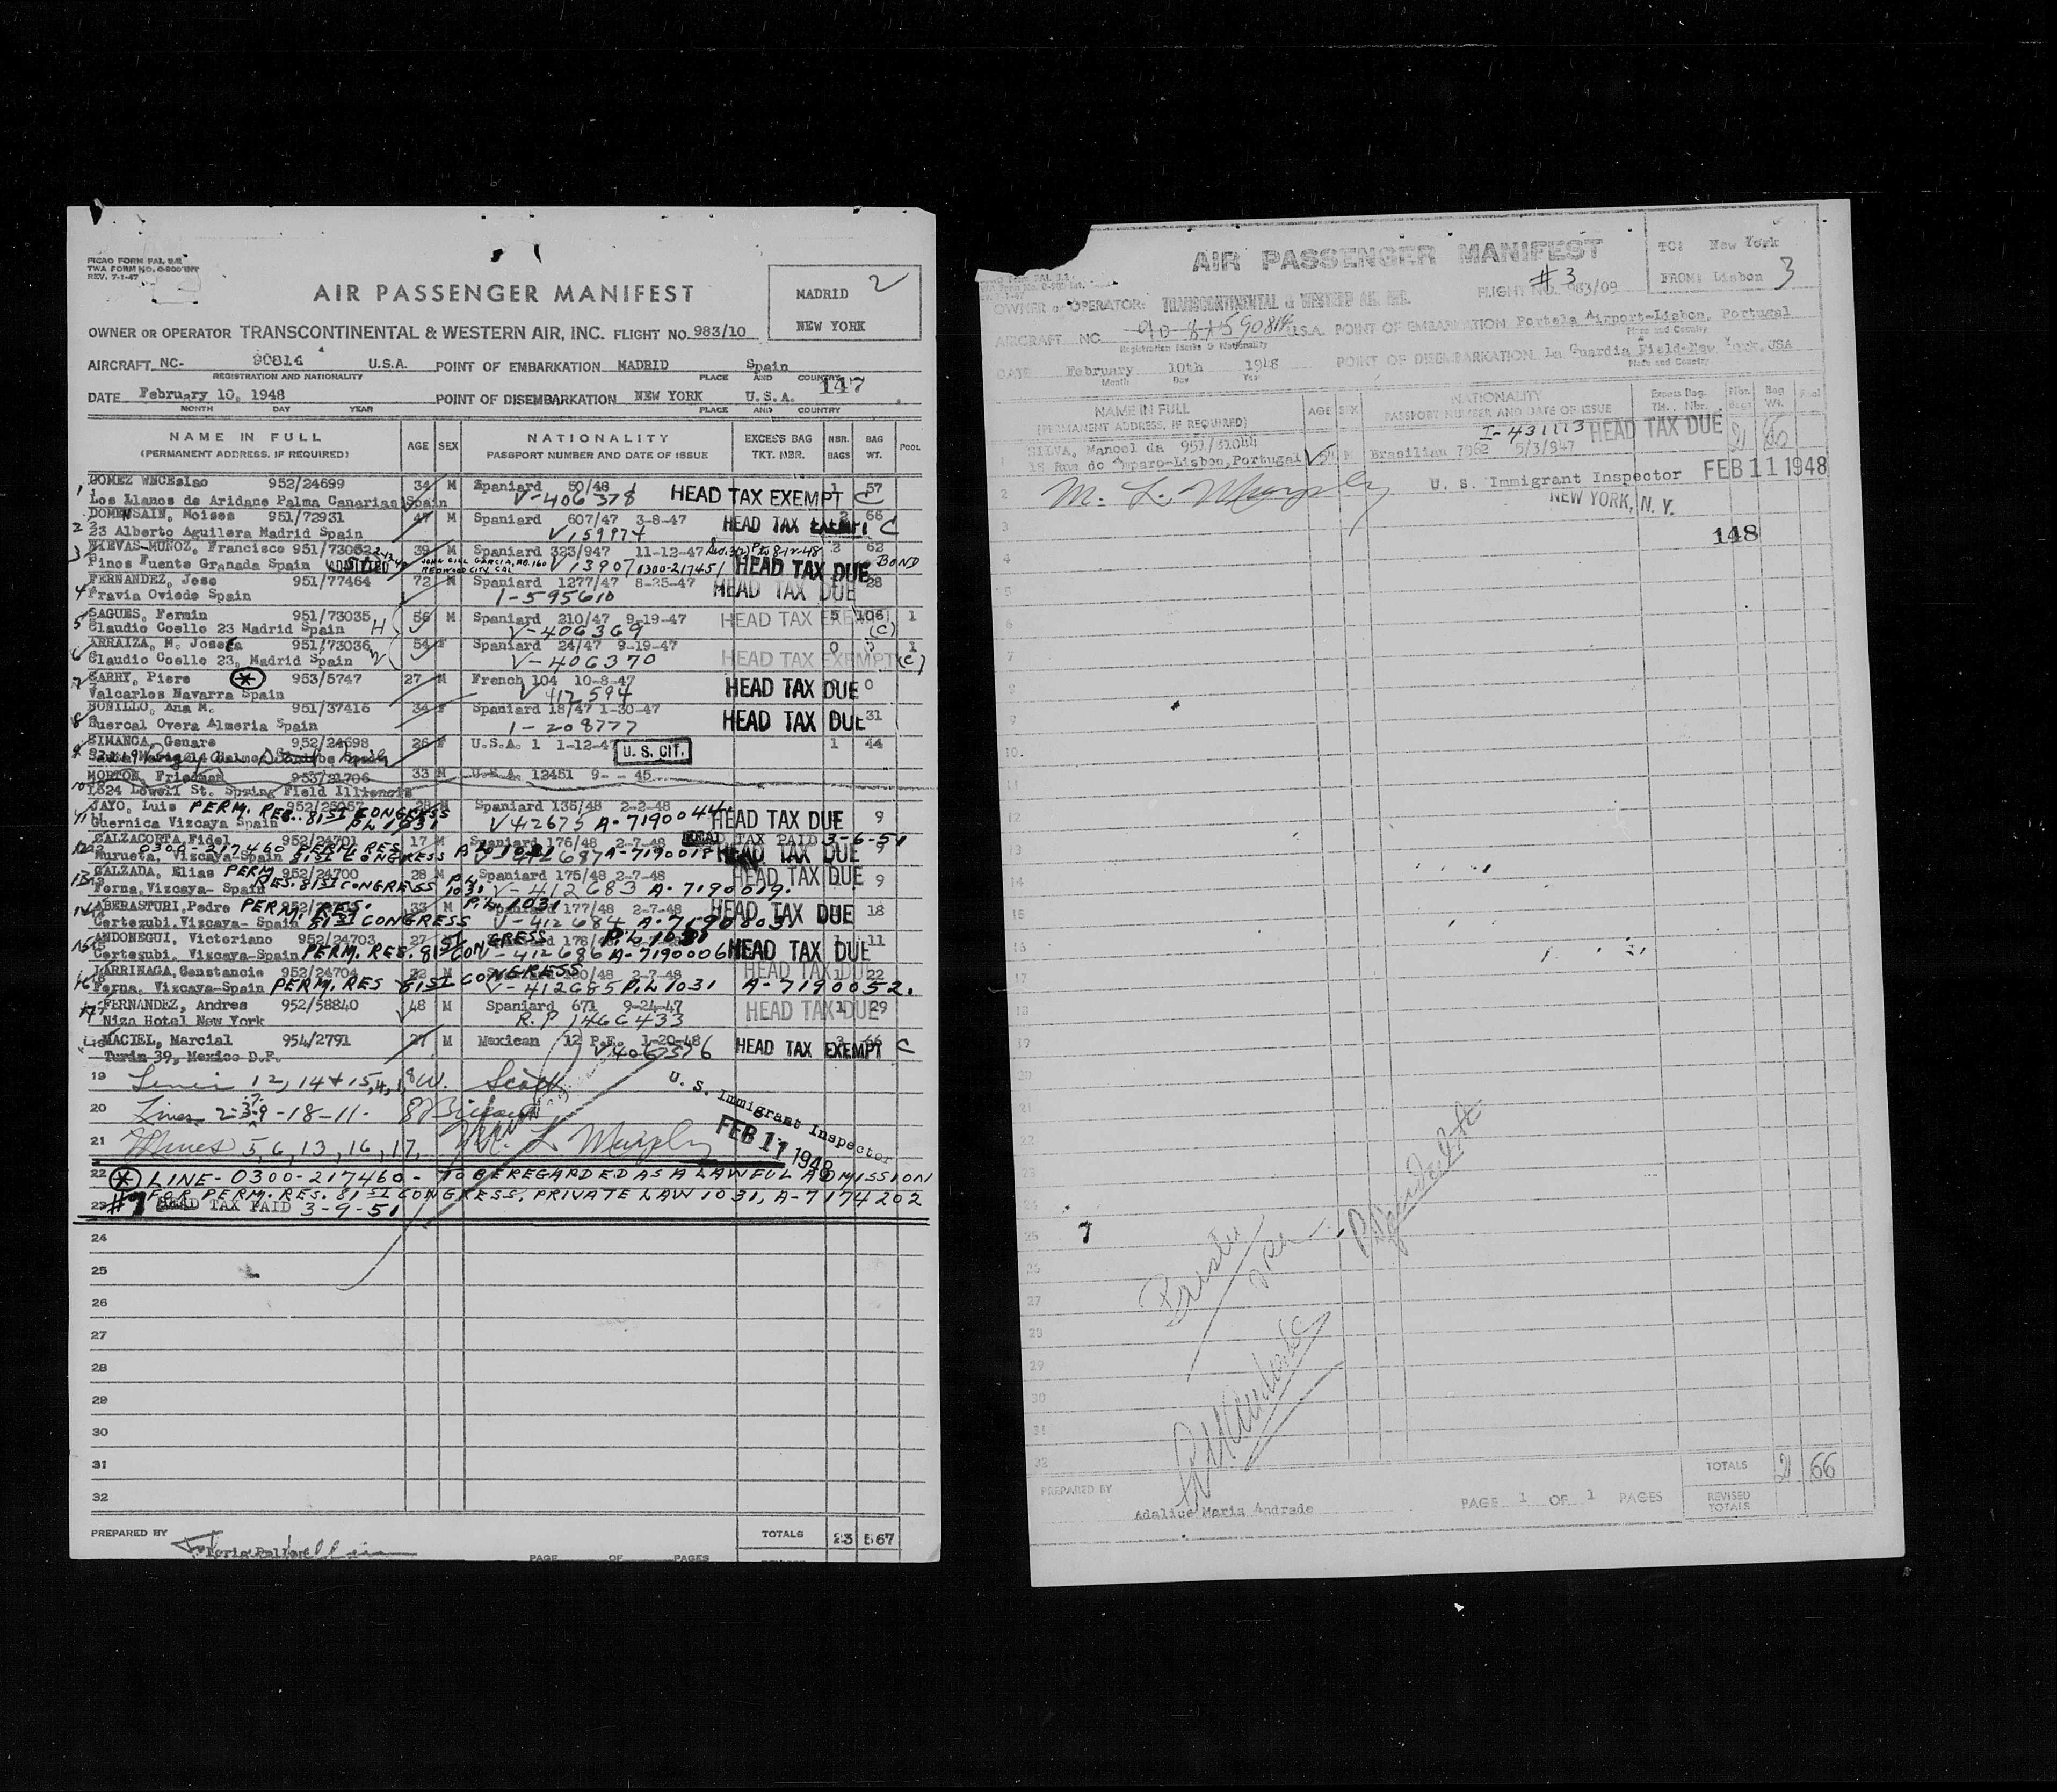 PICAO FORM FAL 2-2
TWA FORM NO. O-900 INT
REV. 7-1-47
AIR PASSENGER MANIFEST
MADRID 2
NEW YORK
OWNER OR OPERATOR TRANSCONTINENTAL & WESTERN AIR, INC. FLIGHT NO. 983/10
AIRCRAFT NC- 90814 U.S.A. POINT OF EMBARKATION MADRID Spain
REGISTRATION AND NATIONALITY PLACE AND COUNTRY
147
DATE February 10, 1948 POINT OF DISEMBARKATION NEW YORK U.S.A.
MONTH DAY YEAR PLACE AND COUNTRY
NAME IN FULL AGE SEX NATIONALITY EXCESS BAG NBR. BAG POOL
(PERMANENT ADDRESS, IF REQUIRED) PASSPORT NUMBER AND DATE OF ISSUE TKT. NBR. BAGS WT.
1 GOMEZ WNCEslao 952/24699 34 M Spaniard 50/48 1 57
Los Llanos de Aridane Palma Canarias Spain V-406378 HEAD TAX EXEMPT C
2 DOMENSAIN, Moises 951/72931 47 M Spaniard 607/47 3-8-47 2 66
23 Alberto Aguilera Madrid Spain V 159974 HEAD TAX EXEMPT C
3 NIEVAS-MUÑOZ, Francisco 951/73052 39 M Spaniard 323/947 11-12-47 2 62
Pinos Fuente Granada Spain ADMITTED JOHN GILL GARCIA, RD. 160 REDWOOD CITY CAL V 13907 0300-217451 HEAD TAX DUE BOND
4 FERNANDEZ, Jose 951/77464 72 M Spaniard 1277/47 8-25-47 28
Pravia Oviedo Spain I-595610 HEAD TAX DUE
5 SAGUES, Fermin 951/73035 56 M Spaniard 210/47 9-19-47 HEAD TAX EXEMPT 5 106 1
Claudio Coello 23 Madrid Spain H V-406369 (C)
6 ARRAIZA, M. Josefa 951/73036 54 F Spaniard 24/47 9-19-47 0 1
Claudio Coello 23, Madrid Spain W V-406370 HEAD TAX EXEMPT (C)
7 SARRY, Piere 953/5747 27 M French 104 10-8-47 HEAD TAX DUE 0
Valcarlos Navarra Spain V 412594
8 BONILLO, Ana M. 951/37416 34 F Spaniard 18/47 1-30-47 HEAD TAX DUE 31
Huercal Overa Almeria Spain I-208777
9 SIMANCA, Genare 952/24698 26 F U.S.A. 1 1-12-47 U.S. CIT. 1 44
10 MORTON, Friedman 953/21706 33 M U.S.A. 12451 9- - 45
1824 Lowell St. Spring Field Illinois
11 JAYO, Luis PERM. RES. 81ST CONGRESS 28 M Spaniard 135/48 2-2-48 HEAD TAX DUE 9
Guernica Vizcaya Spain PL 1031 V 412675 A-7190044
CALZACORTA, Fidel 952/24701 17 M Spaniard 176/48 2-7-48 HEAD TAX PAID 3-6-51
0300-217460 PERM. RES.
Murueta, Vizcaya-Spain 81ST CONGRESS P.L. 1031 A-7190018 HEAD TAX DUE
13 CALZADA, Elias PERM 952/24700 28 M Spaniard 175/48 2-7-48 HEAD TAX DUE 9
Forna, Vizcaya- Spain RES. 81ST CONGRESS P.L. 1031 V-412683 A-7190019.
14 ABERASTURI, Pedro PERM. RES. 33 M P.L. 1031 177/48 2-7-48 HEAD TAX DUE 18
Cortezubi, Vizcaya- Spain 81ST CONGRESS V-412684
15 ANDONEGUI, Victoriano 952/24703 27 178/48 P.L. 1031 1 11
Cortezubi, Vizcaya-Spain PERM. RES. 81ST CONGRESS V-412686 A-7190006 HEAD TAX DUE
16 LARRINAGA, Constancio 952/24704 22 M 2-7-48 HEAD TAX DUE 1 22
Forna, Vizcaya-Spain PERM. RES 81ST CONGRESS V-412685 P.L. 1031 A-7190052.
17 FERNANDEZ, Andres 952/58840 48 M Spaniard 671 9-24-47 HEAD TAX DUE 1 29
Niza Hotel New York R.P 1466433
18 MACIEL, Marcial 954/2791 27 M Mexican 12 P.E. 1-20-48 HEAD TAX EXEMPT 66 C
Turin 39, Mexico D.F.
19 12, 14 + 15, 4, 1, 8
20 Lines 2-3-9-18-11-
21 Lines 5, 6, 13, 16, 17, M. L. Murphy
U. S. Immigrant Inspector
FEB 11 1948
22 * LINE- 0300-217460- TO BE REGARDED AS A LAWFUL ADMISSION
23 #7 FOR PERM. RES. 81ST CONGRESS. PRIVATE LAW 1031, A-7174202
HEAD TAX PAID 3-9-51
24
25
26
27
28
29
30
31
32
PREPARED BY TOTALS 23 567
PAGE OF PAGES
AIR PASSENGER MANIFEST
#3
TO: New York
FROM: Lisbon 3
OWNER or OPERATOR: TRANSCONTINENTAL & WESTERN AIR INC. FLIGHT NO. 983/09
AIRCRAFT NC 90814 U.S.A. POINT OF EMBARKATION Portela Airport-Lisbon, Portugal
Registration Marks & Nationality Place and Country
DATE February 10th 1948 POINT OF DISEMBARKATION La Guardia Field-New York, USA
Month Day Year Place and Country
NAME IN FULL AGE SEX NATIONALITY Excess Bag. Nbr. Bag Pool
(PERMANENT ADDRESS, IF REQUIRED) PASSPORT NUMBER AND DATE OF ISSUE Tkt. Nbr. Bags Wt.
I-431113 HEAD TAX DUE
1 SILVA, Manoel da 951/31044 Brasilian 7962 5/3/947
18 Rua do Amparo-Lisbon, Portugal
2 M. L. Murphy U. S. Immigrant Inspector FEB 11 1948
NEW YORK, N. Y.
3
148
4
5
6
7
8
9
10.
11
12
13
14
15
16
17
18
19
20
21
22
23
24
25
26
27
28
29
30
31
32
TOTALS 2 66
PREPARED BY
Adalice Maria Andrade PAGE 1 OF 1 PAGES REVISED TOTALS